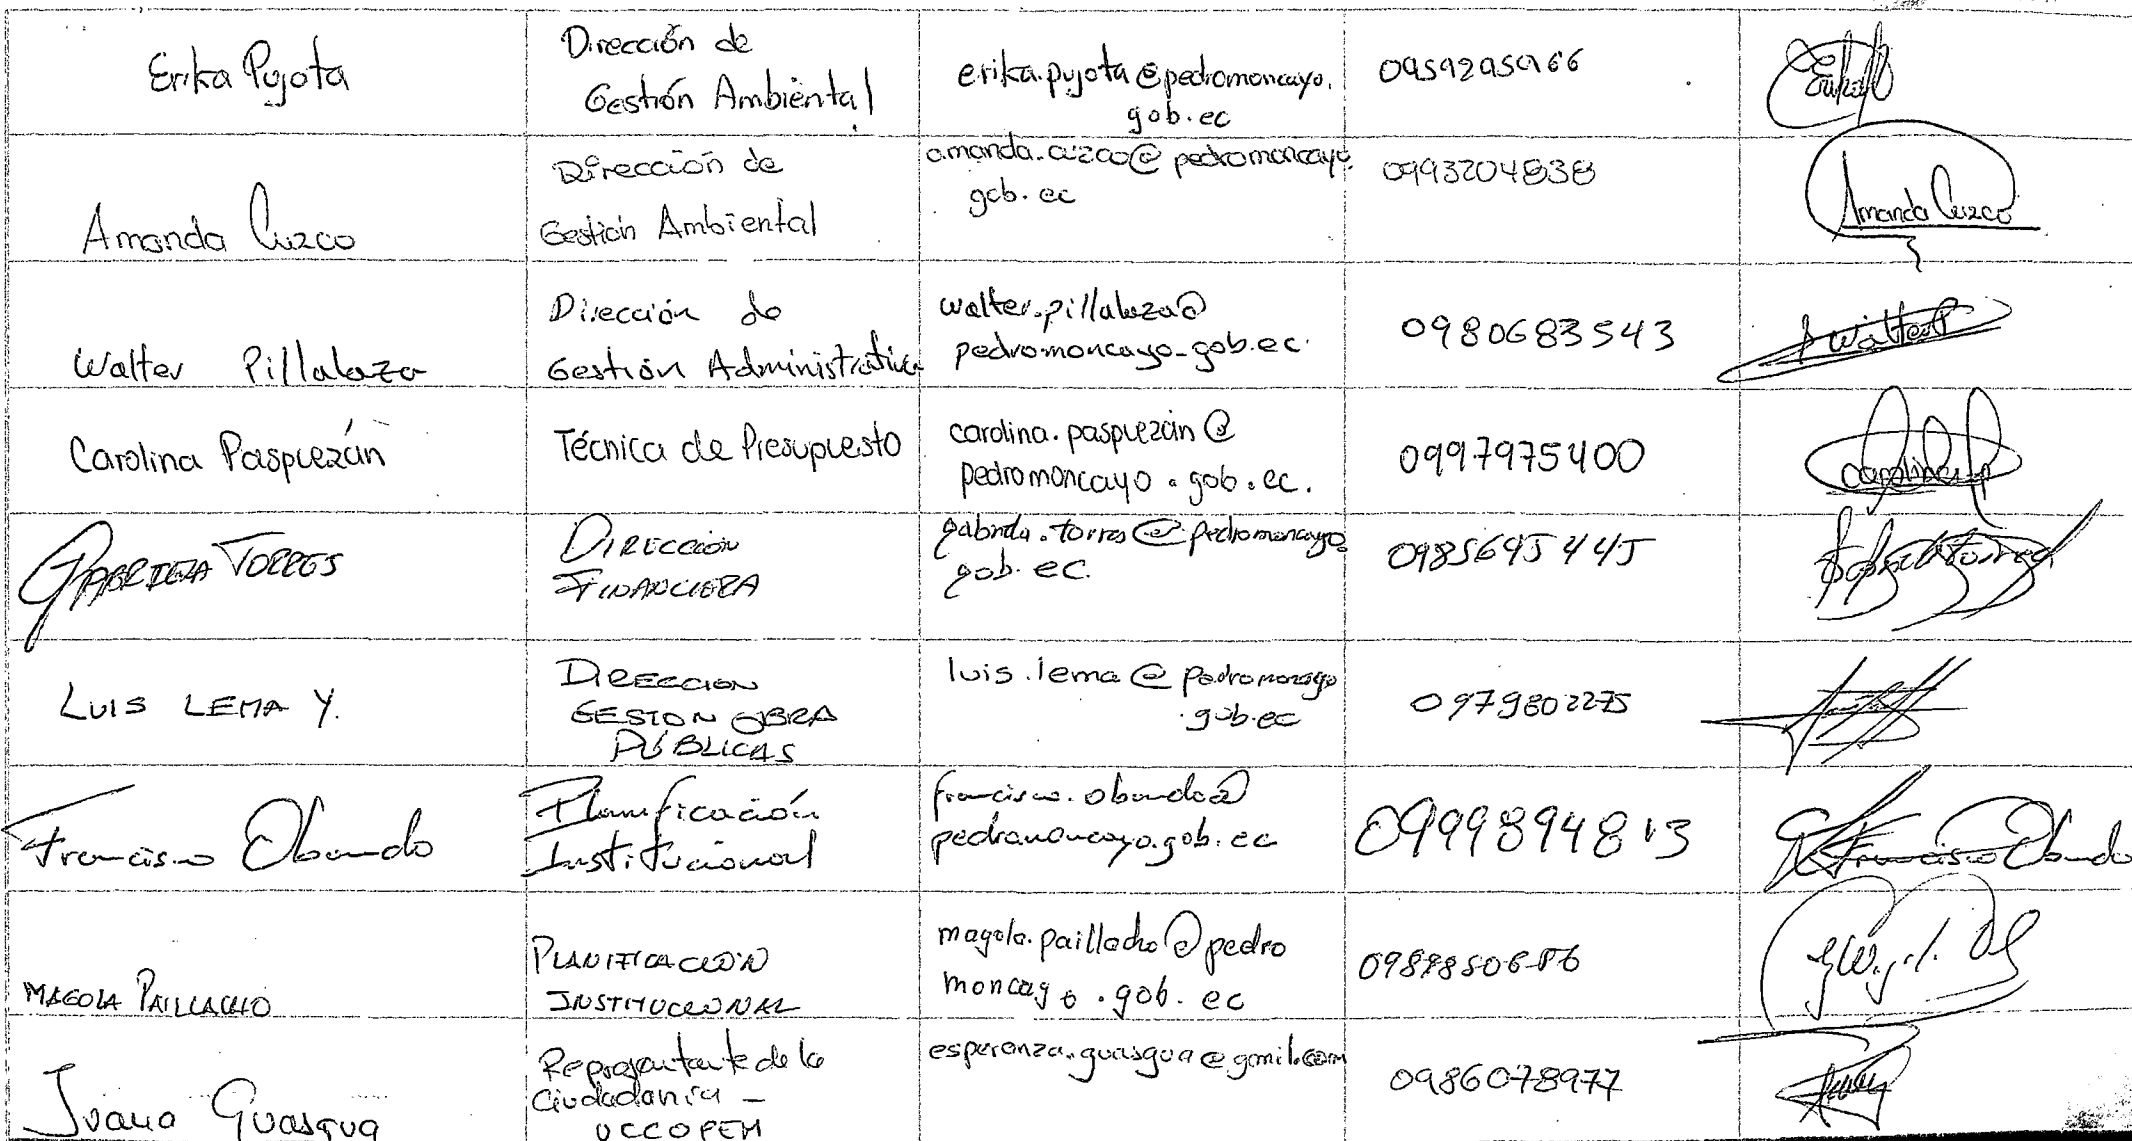 Erika Pujota
Dirección de
Gestión Ambiental
erika.pujota@pedromoncayo.
gob.ec
Erika P
Amanda Cuzco
Dirección de
Gestión Ambiental
amanda.cuzco@pedromoncayo.
gob.ec
0993204838
Amanda Cuzco
Walter Pillalaza
Dirección de
Gestión Administrativa
walter.pillalaza@
pedromoncayo.gob.ec.
0980683543
WalterP
Carolina Paspuezán
Técnica de Presupuesto
carolina.paspuezán@
pedromoncayo.gob.ec.
0997975400
GABRIELA TORRES
DIRECCIÓN
FINANCIERA
gabriela.torres@pedromoncayo.
gob.ec.
0985645445
LUIS LEMA Y.
DIRECCION
GESTION OBRA
PÚBLICAS
luis.lema@pedromoncayo
.gob.ec
0979802275
Francisco Obando
Planificación
Institucional
francisco.obando@
pedromoncayo.gob.ec
Francisco Obando
MAGOLA PAILLACHO
PLANIFICACIÓN
INSTITUCIONAL
magola.paillacho@pedro
moncayo.gob.ec
Juana Guasgua
Representante de la
Ciudadanía -
UCCOPEM
esperanza.guasgua@gmil.com
0986078977